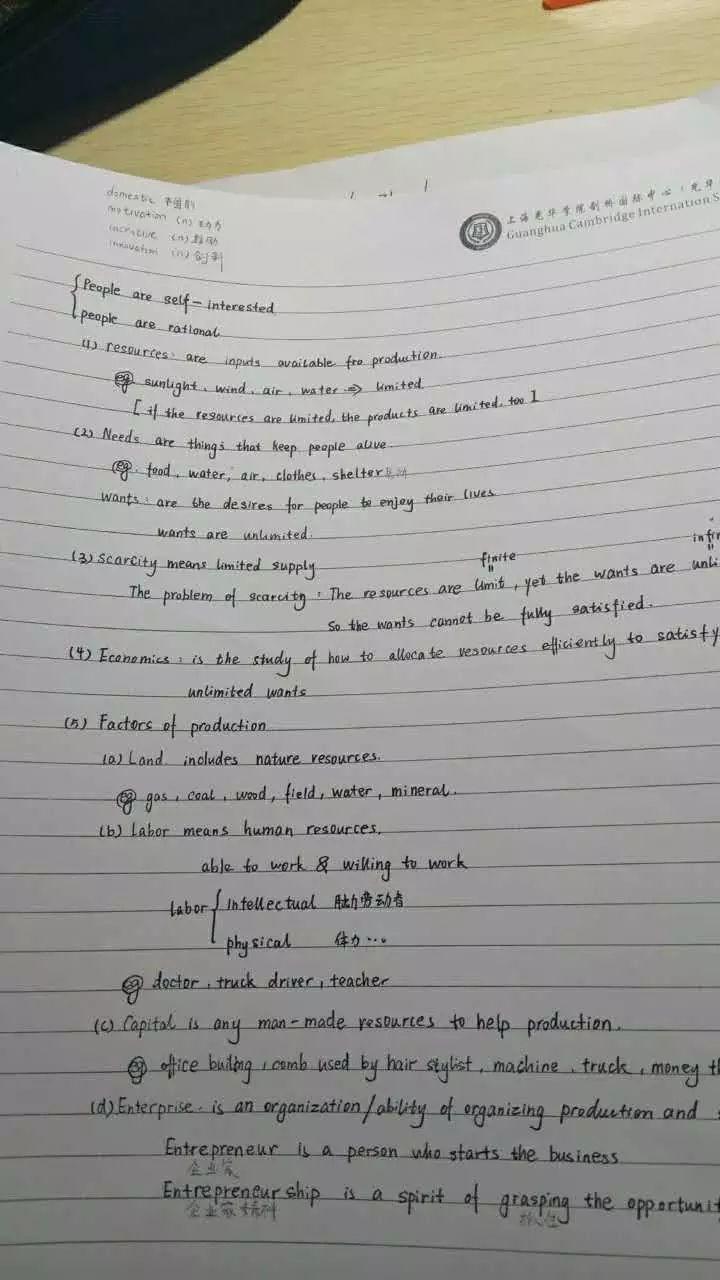 domestic
motivation (n) 动力
incentive (n) 鼓励
innovation (n) 创新
上海光华学院剑桥国际中心(光华
Guanghua Cambridge International S
{ People are self-interested
people are rational
(1) resources: are inputs available fro production.
eg sunlight, wind, air, water ⇒ limited
[ if the resources are limited, the products are limited, too ]
(2) Needs are things that keep people alive.
eg. food, water, air, clothes, shelter
wants: are the desires for people to enjoy their lives
wants are unlimited.
(3) Scarcity means limited supply
finite
The problem of scarcity: The resources are limit, yet the wants are unli
So the wants cannot be fully satisfied.
(4) Economics: is the study of how to allocate resources efficiently to satisfy
unlimited wants
(5) Factors of production
(a) Land includes nature resources.
eg gas, coal, wood, field, water, mineral.
(b) Labor means human resources.
able to work & willing to work
labor { intellectual 脑力劳动者
physical 体力...
eg doctor, truck driver, teacher
(c) Capital is any man-made resources to help production.
eg office builbng, comb used by hair stylist, machine, truck, money th
(d) Enterprise. is an organization/ability of organizing production and
Entrepreneur is a person who starts the business
企业家
Entrepreneurship is a spirit of grasping the opportunit
企业家精神